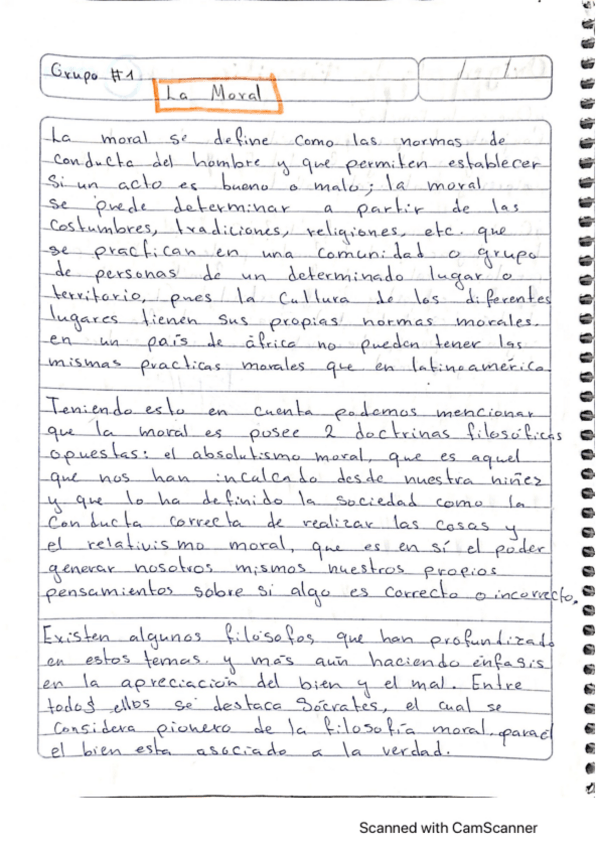 Grupo #1
La Moral
La moral se define como las normas de
conducta del hombre y que permiten establecer
si un acto es bueno o malo; la moral
se puede determinar a partir de las
costumbres, tradiciones, religiones, etc. que
se practican en una comunidad o grupo
de personas de un determinado lugar o
territorio, pues la cultura de los diferentes
lugares tienen sus propias normas morales.
en un país de áfrica no pueden tener las
mismas practicas morales que en latinoamérica
Teniendo esto en cuenta podemos mencionar
que la moral es posee 2 doctrinas filosóficas
opuestas: el absolutismo moral, que es aquel
que nos han incalcado desde nuestra niñez
y que lo ha definido la sociedad como la
conducta correcta de realizar las cosas y
el relativismo moral, que es en sí el poder
generar nosotros mismos nuestros propios
pensamientos sobre si algo es correcto o incorrecto.
Existen algunos filósofos que han profundizado
en estos temas. y más aún haciendo énfasis
en la apreciación del bien y el mal. Entre
todos ellos se destaca Sócrates, el cual se
considera pionero de la filosofía moral. para el
el bien esta asociado a la verdad.
Scanned with CamScanner